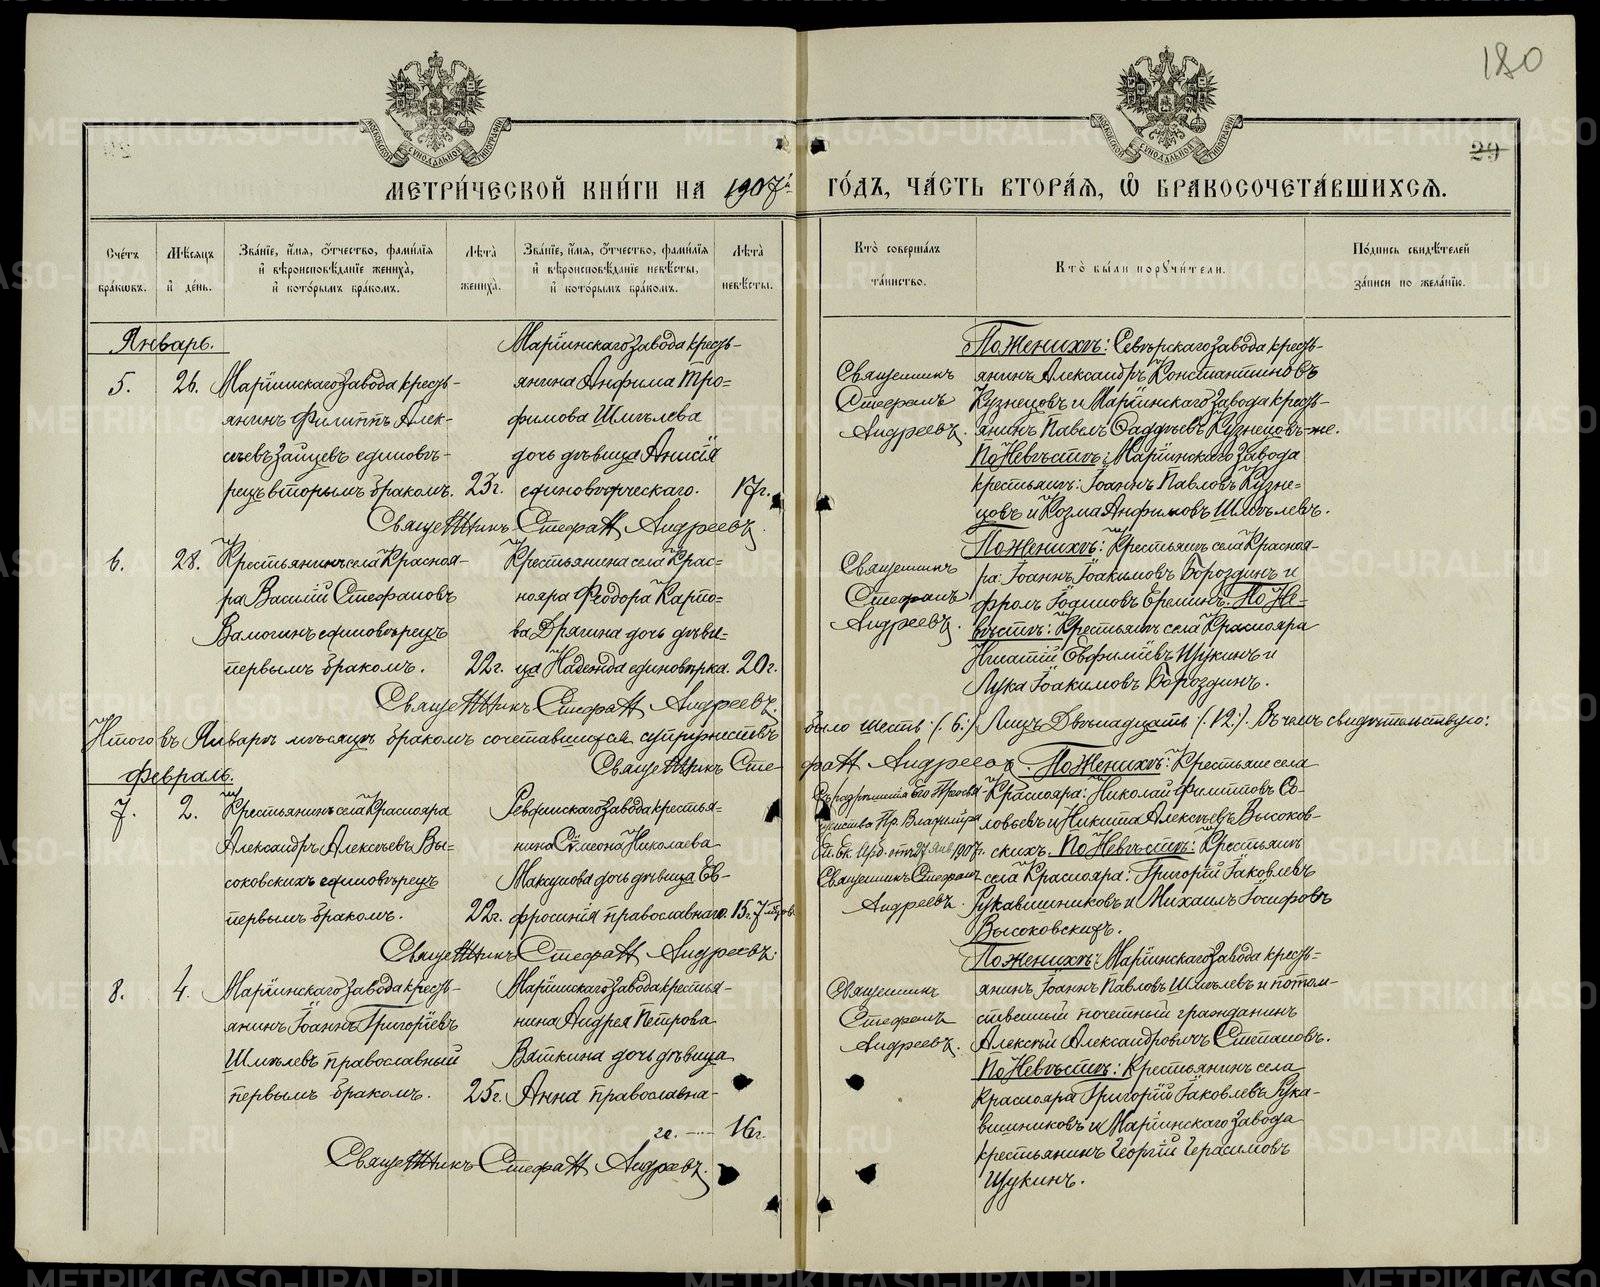 180
29
МОСКОВСКОЙ СѴНОДАЛЬНОЙ ТИПОГРАФІИ
МОСКОВСКОЙ СѴНОДАЛЬНОЙ ТИПОГРАФІИ
МЕТРИ́ЧЕСКОЙ КНИ́ГИ НА 1907й ГО́ДЪ, ЧА́СТЬ ВТОРА́Я, Ѡ БРАКОСОЧЕТА́ВШИХСЯ.
Сче́тъ бра́кѡвъ.
Мѣ́сяцъ и҆ де́нь.
Зва́нїе, и҆́мя, ѻ҆́тчество, фами́лїя и҆ вѣроисповѣ́данїе жениха̀, и҆ кото́рымъ бра́комъ.
Лѣта̀ жениха̀.
Зва́нїе, и҆́мя, ѻ҆́тчество, фами́лїя и҆ вѣроисповѣ́данїе невѣ́сты, и҆ кото́рымъ бра́комъ.
Лѣта̀ невѣ́сты.
Кто̀ соверша́лъ та́инство.
Кто̀ бы́ли порꙋчи́тели.
По́дпись свидѣ́телей за́писи по жела́нїю.
Январь.
5.
26.
Маріинскаго завода кресть-
янинъ Филиппъ Алек-
сѣевъ Зайцевъ единовѣ-
рецъ вторымъ бракомъ.
23г.
Маріинскаго завода кресть-
янина Анфима Тро=
фимова Шмѣлева
дочь дѣвица Анисія
единовѣрческаго.
17г.
Священникъ Стефанъ Андреевъ.
Священникъ
Стефанъ
Андреевъ.
По Женихѣ: Сѣверскаго завода кресть-
янинъ Александръ Константиновъ
Кузнецовъ и Маріинскаго завода кресть-
янинъ Павелъ Фаддѣевъ Кузнецовъ-же.
По Невѣстѣ: Маріинскаго завода
крестьяне: Іоаннъ Павловъ Кузне=
цовъ и Козма Анфимовъ Шмѣлевъ.
6.
28.
Крестьянинъ села Краснояр-
ра Василій Стефановъ
Вамогинъ единовѣрецъ
первымъ бракомъ.
22г.
Крестьянина села Крас=
нояра Феодора Карпо=
ва Дрягина дочь дѣви=
ца Надежда единовѣрка.
20г.
Священникъ Стефанъ Андреевъ.
Священникъ
Стефанъ
Андреевъ.
По Женихѣ: Крестьяне села Краснояр-
ра: Іоаннъ Іоакимовъ Бороздинъ и
Фролъ Іодиновъ Ереминъ. По Не=
вѣстѣ: Крестьяне села Краснояра
Игнатій Евфиміевъ Щукинъ и
Лука Іоакимовъ Бороздинъ.
Итого въ Январѣ мѣсяцѣ бракомъ сочетавшихся супружествъ было шесть (6.) Лицъ Двѣнадцать (12.) Въ чемъ свидѣтельствую:
Священникъ Стефанъ Андреевъ.
Февраль.
7.
2.
Крестьянинъ села Краснояра
Александръ Алексѣевъ Вы=
соковскихъ единовѣрецъ
первымъ бракомъ.
22г.
Ревдинскаго завода крестья=
нина Сѵмеона Николаева
Максунова дочь дѣвица Ев-
фросинія православнаго.
15г. 7 мѣс.
Священникъ Стефанъ Андреевъ.
Съ разрѣшенія Его Преосвя-
щенства Пр. Владиміра
Еп. Ек. Ирб. отъ 27 Янв 1907г.
Священникъ Стефанъ
Андреевъ.
По Женихѣ: Крестьяне села
Краснояра: Николай Филипповъ Со-
ловьевъ и Никита Алексѣевъ Высоков-
скихъ. По Невѣстѣ: Крестьяне
села Краснояра: Григорій Іаковлевъ
Рукавишниковъ и Михаилъ Іосифовъ
Высоковскихъ.
8.
4.
Маріинскаго завода кресть-
янинъ Іоаннъ Григоріевъ
Шмѣлевъ православный
первымъ бракомъ.
25г.
Маріинскаго завода крестья-
нина Андрея Петрова
Вяткина дочь дѣвица
Анна православна-
го.
16г.
Священникъ Стефанъ Андреевъ.
Священникъ
Стефанъ
Андреевъ.
По женихѣ: Маріинскаго завода кресть=
янинъ Іоаннъ Павловъ Шмѣлевъ и потом-
ственный почетный гражданинъ
Алексѣй Александровичъ Степановъ.
По Невѣстѣ: Крестьянинъ села
Краснояра Григорій Іаковлевъ Рука-
вишниковъ и Маріинскаго завода
крестьянинъ Георгій Герасимовъ
Щукинъ.
METRIKI.GASO-URAL.RU